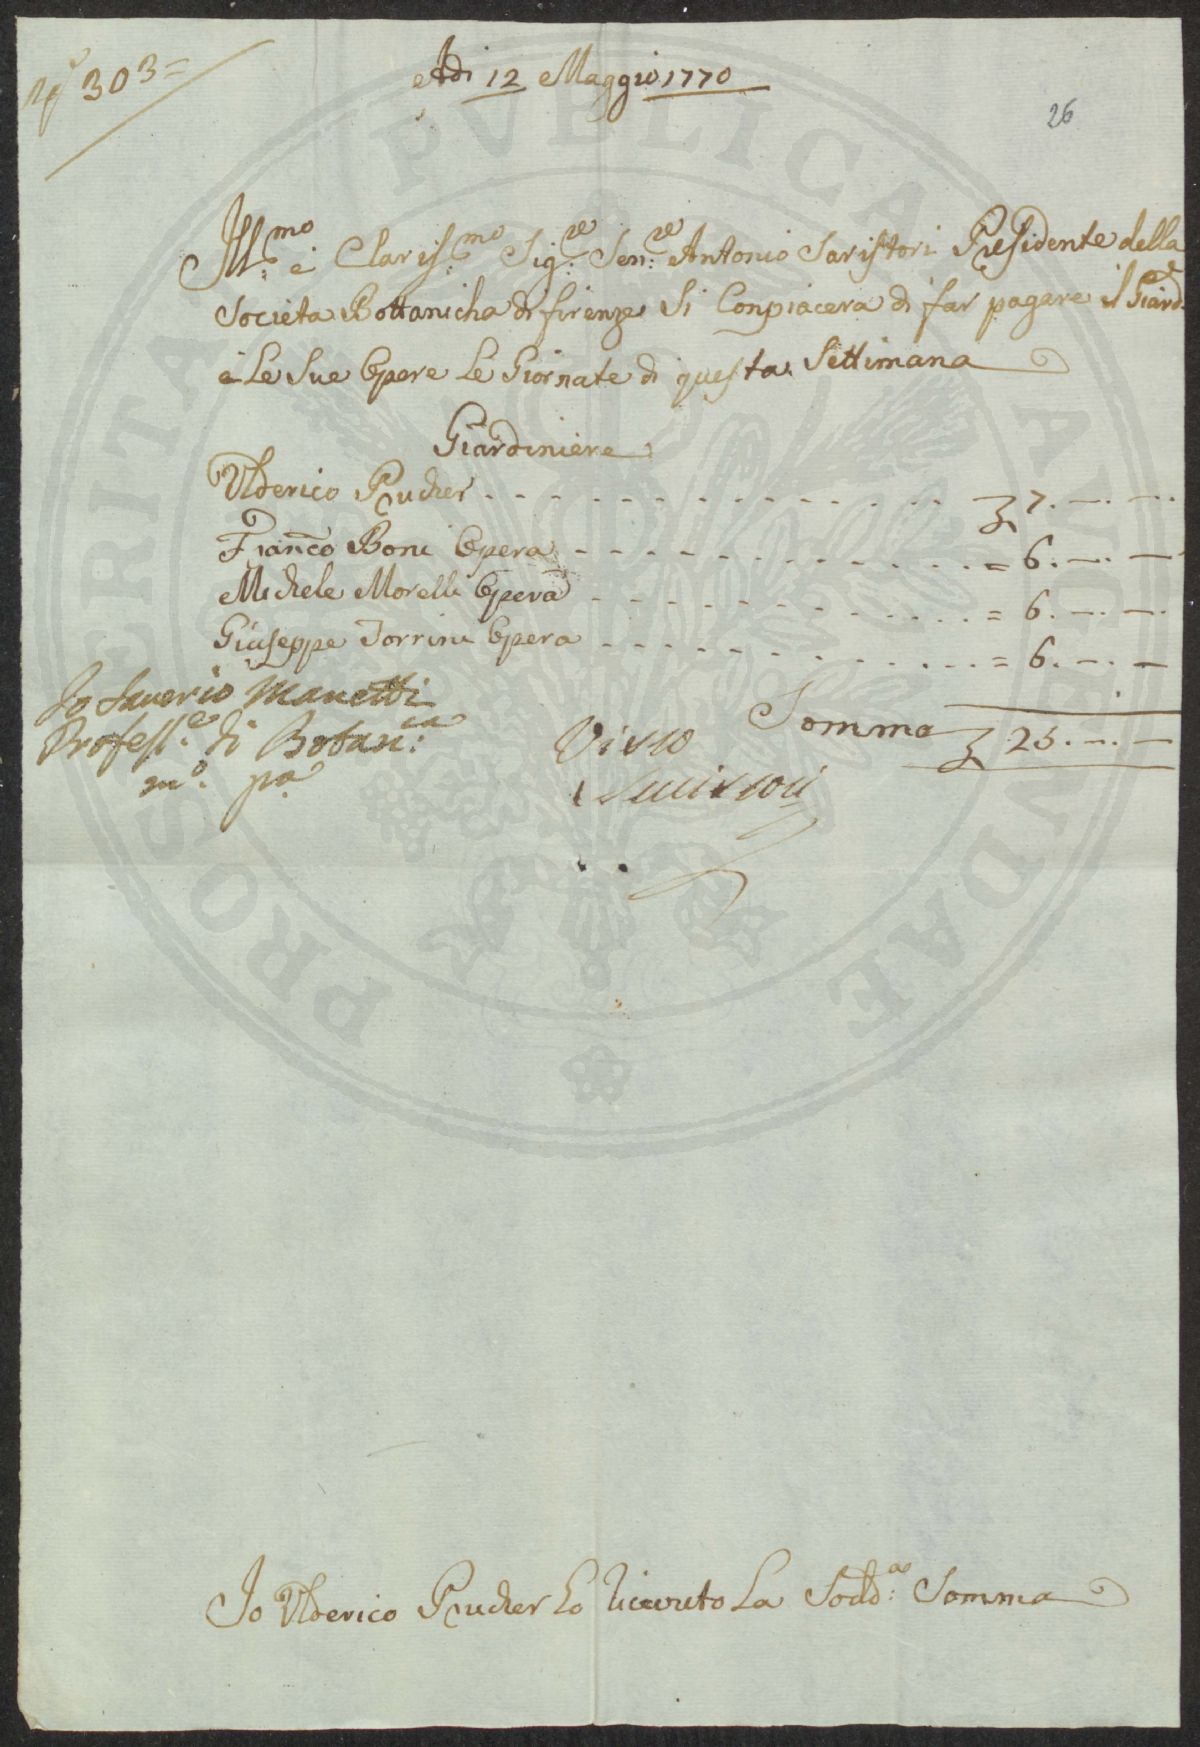 N.º 303=
Adi 12 Maggio 1770
26
Ill:mo e Claris:mo Sig:re Sen:re Antonio Saristori Presidente della
Societa Bottanicha di firenze Si Conpiacera di far pagare il Giard:e
e Le Sue Opere Le Giornate di questa Settimana
Giardiniere
Ulderico Prucher - - - - - - - - - - - - - - - - 7. —. —.
Franco Boni Opera - - - - - - - - - - - - . . = 6. —. —
Michele Morelli Opera - - - - - - - - - . . . = 6. —. —.
Giuseppe Torrini Opera - - - - - - - - . . . . = 6. —. —
Somma 25. —. —
Io Saverio Manetti
Profess:e di Botan:ca
mo. pa
Visto
Io Ulderico Prucher ho riceuto La Sodd:a Somma
PROSPERITATI PVBLICAE AVGENDAE